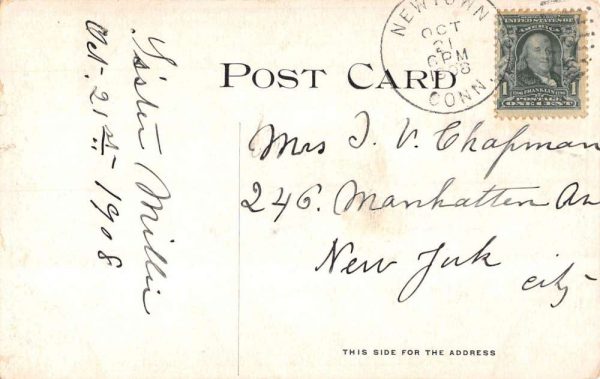 NEWTOWN
OCT
21
6 PM
1908
CONN.
UNITED STATES OF AMERICA
1 FRANKLIN 1
POSTAGE
ONE CENT
POST CARD
Sister Millie
Oct. 21st 1908
Mrs J. V. Chapman
246. Manhatten Av
New York
City
THIS SIDE FOR THE ADDRESS